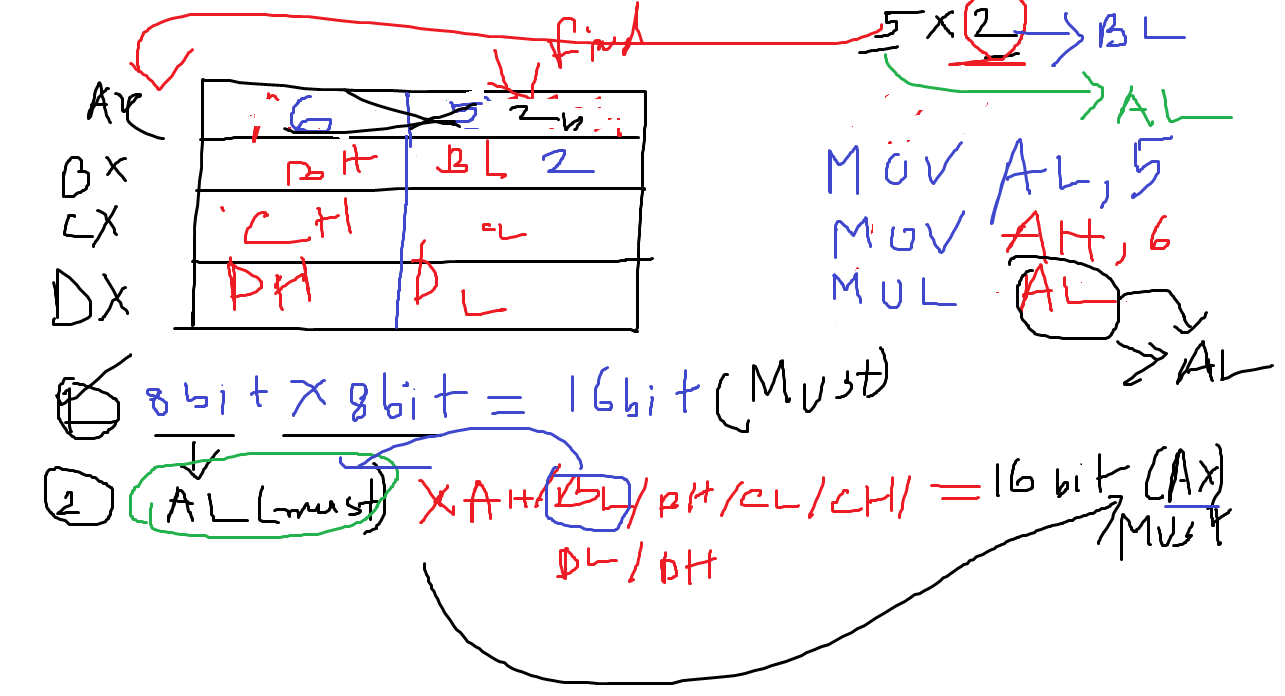 5 X 2 → BL
find
AL
AX 6 5 2
BX BH BL 2
CX CH CL
DX DH DL
MOV AL, 5
MOV AH, 6
MUL AL
AL
1 8 bit X 8bit = 16bit (Must)
2 AL (must) X AH/BL/BH/CL/CH/ = 16 bit (AX)
DL/DH
Must